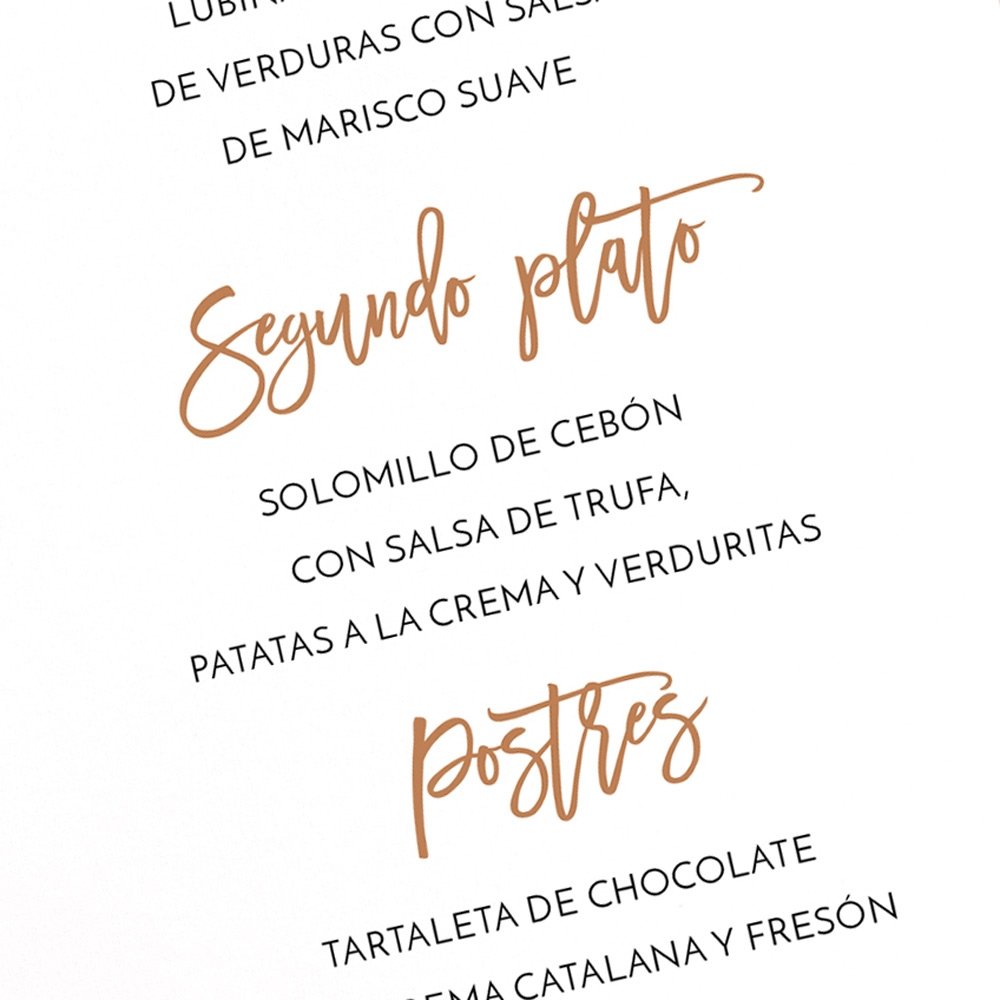 LUBINA
DE VERDURAS CON SALSA
DE MARISCO SUAVE
Segundo plato
SOLOMILLO DE CEBÓN
CON SALSA DE TRUFA,
PATATAS A LA CREMA Y VERDURITAS
Postres
TARTALETA DE CHOCOLATE
CREMA CATALANA Y FRESÓN